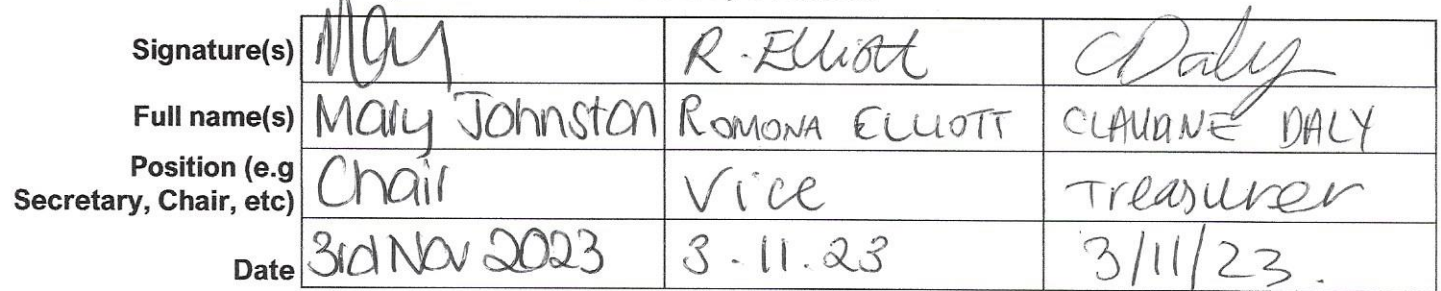 Signature(s) R. Elliott CDaly
Full name(s) Mary Johnston ROMONA ELLIOTT DALY
Position (e.g
Secretary, Chair, etc) Chair Vice Treasurer
Date 3rd Nov 2023 3.11.23 3/11/23.